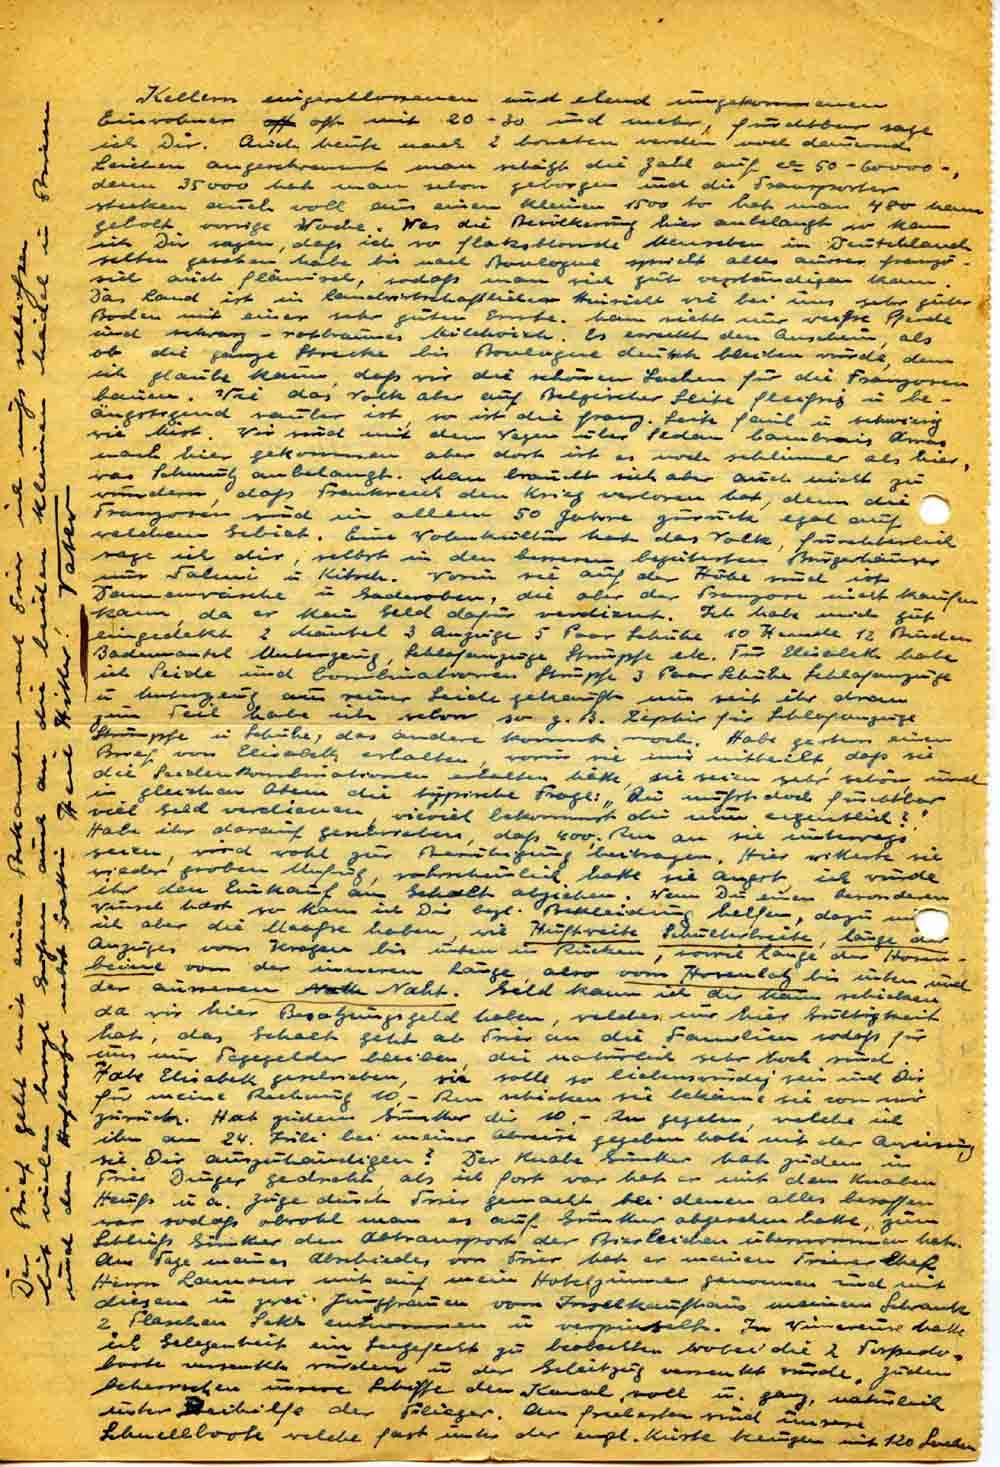 Kellern eingeschlossenen und elend umgekommenen
Einwohner oft mit 20-30 und mehr, furchtbar sage
ich Dir. Auch heute nach 2 Monaten werden noch dauernd
Leichen angeschwemmt man schätzt die Zahl auf ca 50-60000-,
denn 35000 hat man schon geborgen und die Transporter
stecken auch voll aus einem kleinen 1500 to hat man 480 Mann
geholt vorige Woche. Was die Bevölkerung hier anbelangt so kann
ich Dir sagen, daß ich so flachsblonde Menschen in Deutschland
selten gesehen habe bis nach Boulogne spricht alles ausser franzö-
sich auch flämisch, sodaß man sich gut verständigen kann.
Das Land ist in landwirtschaftlicher Hinsicht wie bei uns sehr guter
Boden mit einer sehr guten Ernte. Man sieht nur weiße Pferde
und schwarz-rotbraunes Milchvieh. Es erweckt den Anschein, als
ob die ganze Strecke bis Boulogne deutsch bleiben würde, denn
ich glaube kaum, daß wir die schönen Sachen für die Franzosen
bauen. Wie das Volk aber auf Belgischer Seite fleißig u be-
ängstigend sauber ist, so ist die franz. Seite faul u schwierig
wie Mist. Wir sind mit dem Wagen über Sedan Cambrais Arras
nach hier gekommen aber dort ist es noch schlimmer als hier,
was Schmutz anbelangt. Man braucht sich aber auch nicht zu
wundern, daß Frankreich den Krieg verloren hat, denn die
Franzosen sind in allem 50 Jahre zurück egal auf
welchem Gebiet. Eine Wohnkultur hat das Volk, fürchterlich
sage ich dir, selbst in den besseren Bürgerhäuser
nur Talmi u Kitsch. Worin sie auf der Höhe sind ist
Damenwäsche u Gaderoben, die aber der Franzose nicht kaufen
kann, da er kein Geld dafür verdient. Ich habe mich gut
eingedeckt 2 Mäntel 3 Anzüge 5 Paar Schuhe 10 Hemde 12 Binden
Bademantel Unterzeug, Schlafanzüge Strümpfe etc. Für Elisabeth habe
ich Seide und Combinationen Strümpfe 3 Paar Schuhe Schlafanzüge
u Unterzeug aus reiner Seide gekauft
zum Teil habe ich schon so z. B. Zephir für Schlafanzüge
Strümpfe u Schuhe, das andere kommt noch. Habe gestern einen
Brief von Elisabeth erhalten, worin sie mir mitteilt, daß sie
die Seidenkombinationen erhalten hätte, sie seien sehr schön, und
in gleichen Atem die typische Frage: „Du mußt doch furchtbar
viel Geld verdienen, wieviel bekommst du nun eigentlich?"
Habe ihr darauf geschrieben, daß 400,- Rm an sie unterwegs
seien, wird wohl zur Beruhigung beitragen. Hier witterte sie
wieder groben Unfug, wahrscheinlich hatte sie Angst, ich würde
ihr den Einkauf am Gehalt abziehen. Wenn Du einen besonderen
Wunsch hast so kann ich Dir bezl. Bekleidung helfen, dazu muß
ich aber die Maaße haben, wie Hüftweite Schulterbreite, länge des
Anzuges vom Kragen bis unten im Rücken, sowie länge der Hosen-
beine von der inneren Länge, also vom Hosenlatz bis unten und
der äusseren Naht. Geld kann ich dir kaum schicken
da wir hier Besatzungsgeld haben, welches nur hier Gültigkeit
hat, das Gehalt geht ab Trier an die Familien sodaß für
uns nur Tagegelder bleiben, die natürlich sehr hoch sind.
Habe Elisabeth geschrieben, sie solle so liebenswürdig sein und Dir
für meine Rechnung 10,- Rm schicken sie bekäme sie von mir
zurück. Hat zudem Günther die 10,- Rm gegeben, welche ich
ihm am 24. Juli bei meiner Abreise gegeben habe mit der Anweisung
sie Dir auszuhändigen? Der Knabe Günther hat zudem in
Trier Dinger gedreht, als ich fort war hat er mit dem Knaben
Heuß u.a. Züge durch Trier gemacht bei denen alles besoffen
war sodaß obwohl man es auf Günther abgesehen hatte, zum
Schluß Günther den Abtransport der Bierleichen übernommen hat.
Am Tage meines Abschiedes von Trier hat er meinen Trierer Chef
Herrn mit auf mein Hotelzimmer genommen und mit
diesem u zwei Jungfrauen vom Inselkaufhaus meinem Schrank
2 Flaschen Sekt entnommen u verpinselt. In Wimereux hatte
ich Gelegenheit ein Seegefecht zu beobachten wobei die 2 Torpedo-
boote versenkt wurden u der Geleitzug versenkt wurde. Zudem
beherrschen unsere Schiffe den Kanal voll u. ganz, natürlich
unter Beihilfe der Flieger. Am frechsten sind unsere
Schnellboote welche fast unter der engl. Küste kreuzen mit 120 Sachen
Der Brief geht mit einem Bekannten nach Trier ich muß schließen
Mit vielen herzl. Grüßen auch an die beiden kleinen Mädel in
und den nebst Gattin Heil Hitler! Vater